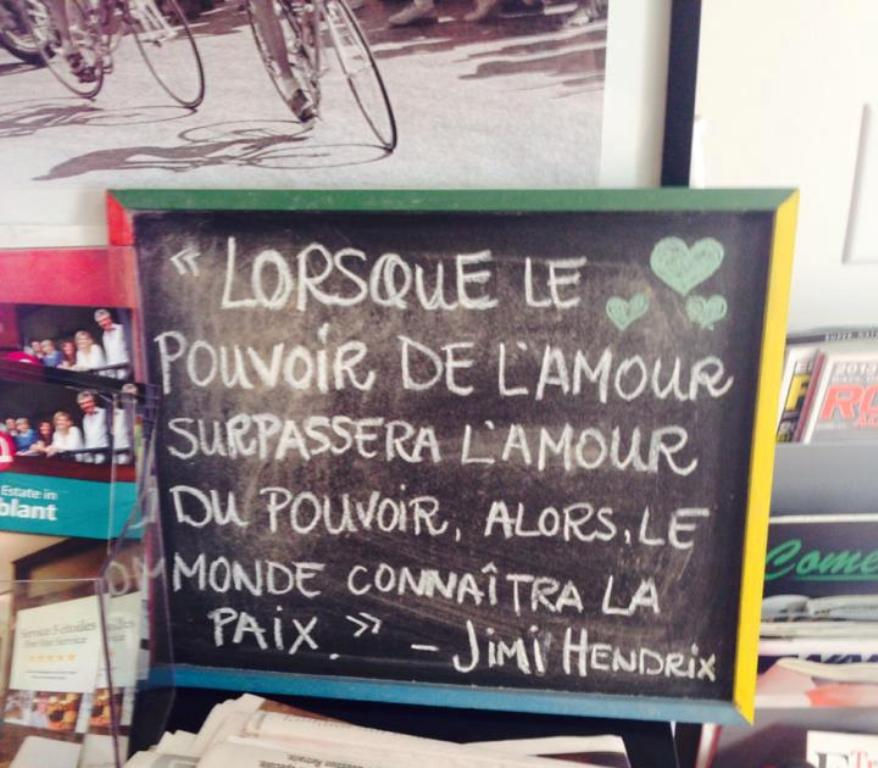 « LORSQUE LE
POUVOIR DE L'AMOUR
SURPASSERA L'AMOUR
DU POUVOIR, ALORS, LE
MONDE CONNAÎTRA LA
PAIX. » – JIMI HENDRIX
Estate in
blant
Service 5 étoiles
Five Star Service
2013
Come